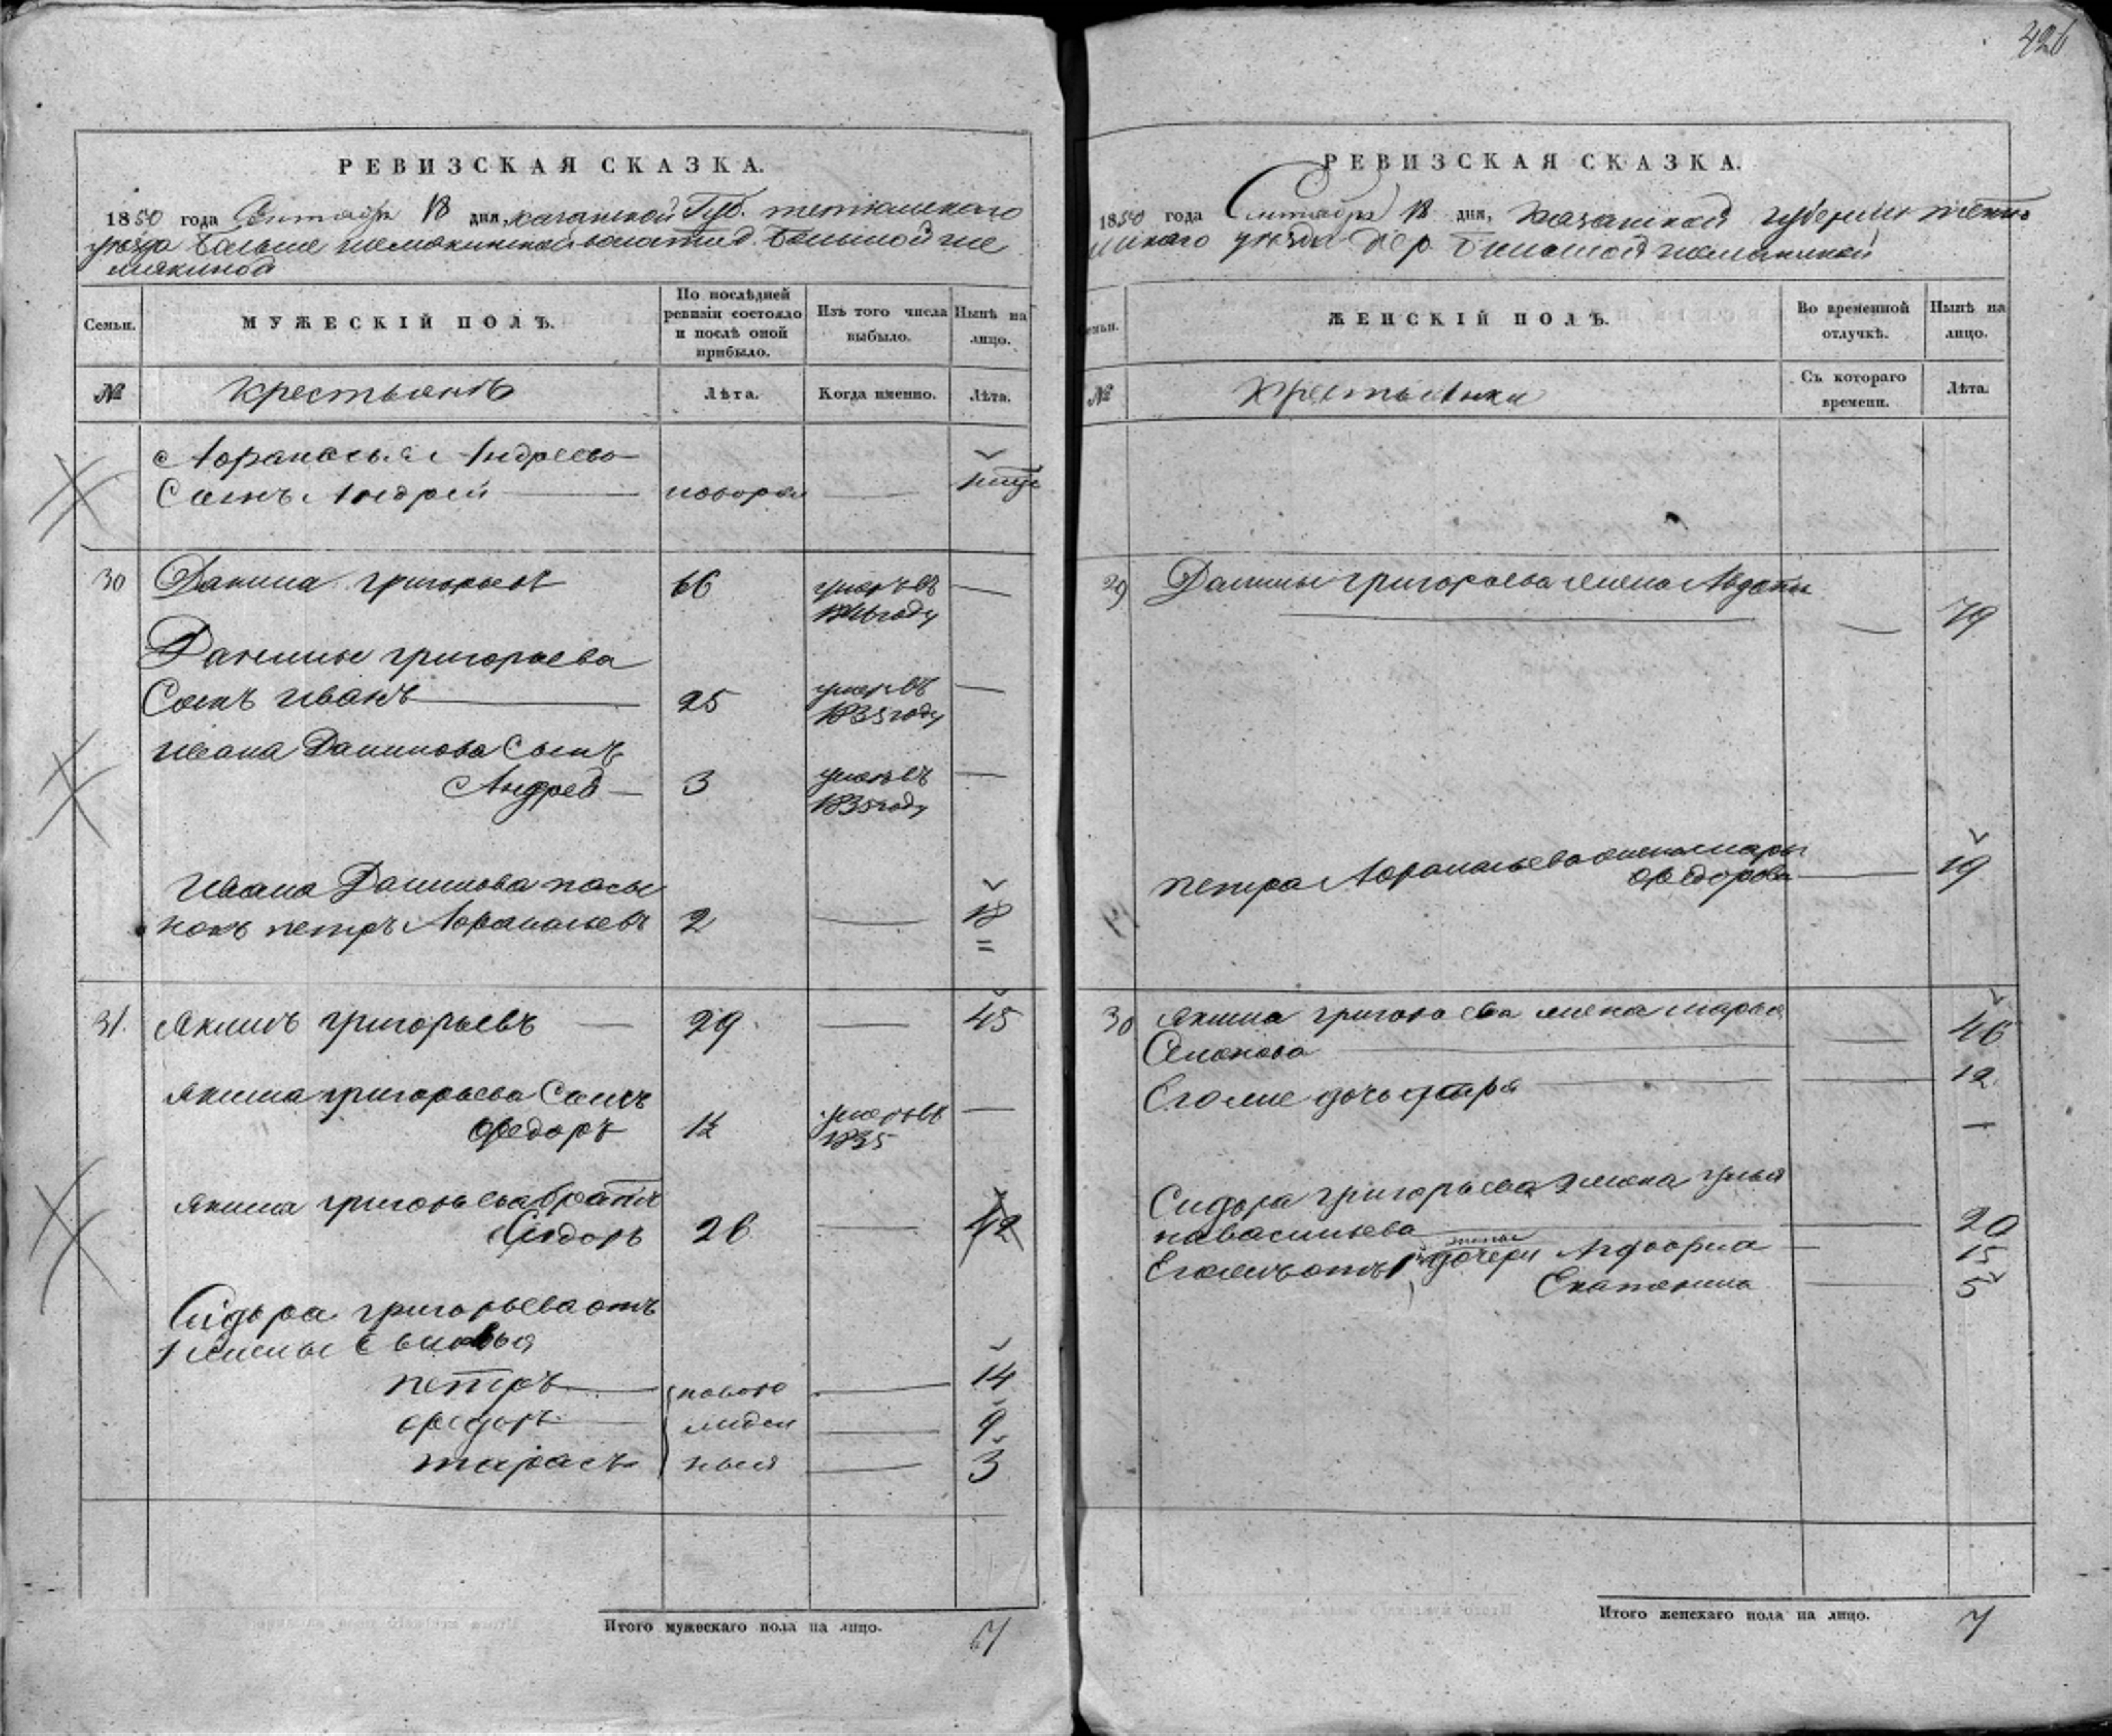 426
РЕВИЗСКАЯ СКАЗКА.
1850 года Сентября 18 дня, казанской Губ. тетюшскаго
уезда больше шемякинской волости д. Большой ше
мякиной
Семьи.
МУЖЕСКІЙ ПОЛЪ.
По послѣдней ревизіи состояло и послѣ оной прибыло.
Изъ того числа выбыло.
Нынѣ на лицо.
№
крестьянъ
Лѣта.
Когда именно.
Лѣта.
Афанасья Андреева
Сынъ Андрей новорож
30 Данила григорьевъ 66 умеръ въ —
1846 году
Данилы григорьева
Сынъ Иванъ 25 умеръ въ —
1835 году
Ивана Данилова Сынъ
Андрей — 3 умеръ въ —
1835 году
Ивана Данилова пасы
нокъ петръ Афанасьевъ 2 — 18
=
31. Якимъ григорьевъ — 29 — 45
Якима григорьева Сынъ
Федоръ 12 умеръ въ —
1835
Якима григорьева братъ
Сидоръ 26 — 42
Сидора григорьева отъ
1 жены Сыновья
петръ — новоро — 14
федоръ — жден — 9
тарасъ — ныя — 3
Итого мужескаго пола на лицо. 7
РЕВИЗСКАЯ СКАЗКА.
1850 года Сентября 18 дня, Казанской губернии тетю
шскаго уезда дер. Большой шемякиной
ЖЕНСКІЙ ПОЛЪ.
Во временной отлучкѣ.
Нынѣ на лицо.
№
Крестьянки
Съ котораго времени.
Лѣта.
29 Данилы григорьева жена Авдотья
— 79
петра Афанасьева жена марья
Федорова — 19
30 Якима григорьева жена марья
Семонова — 46
Его же дочь — 12
1
Сидора григорьева жена улья
на васильева — 20
Его же отъ 1й жены дочери — 15
Екатерина — 5
Итого женскаго пола на лицо. 7